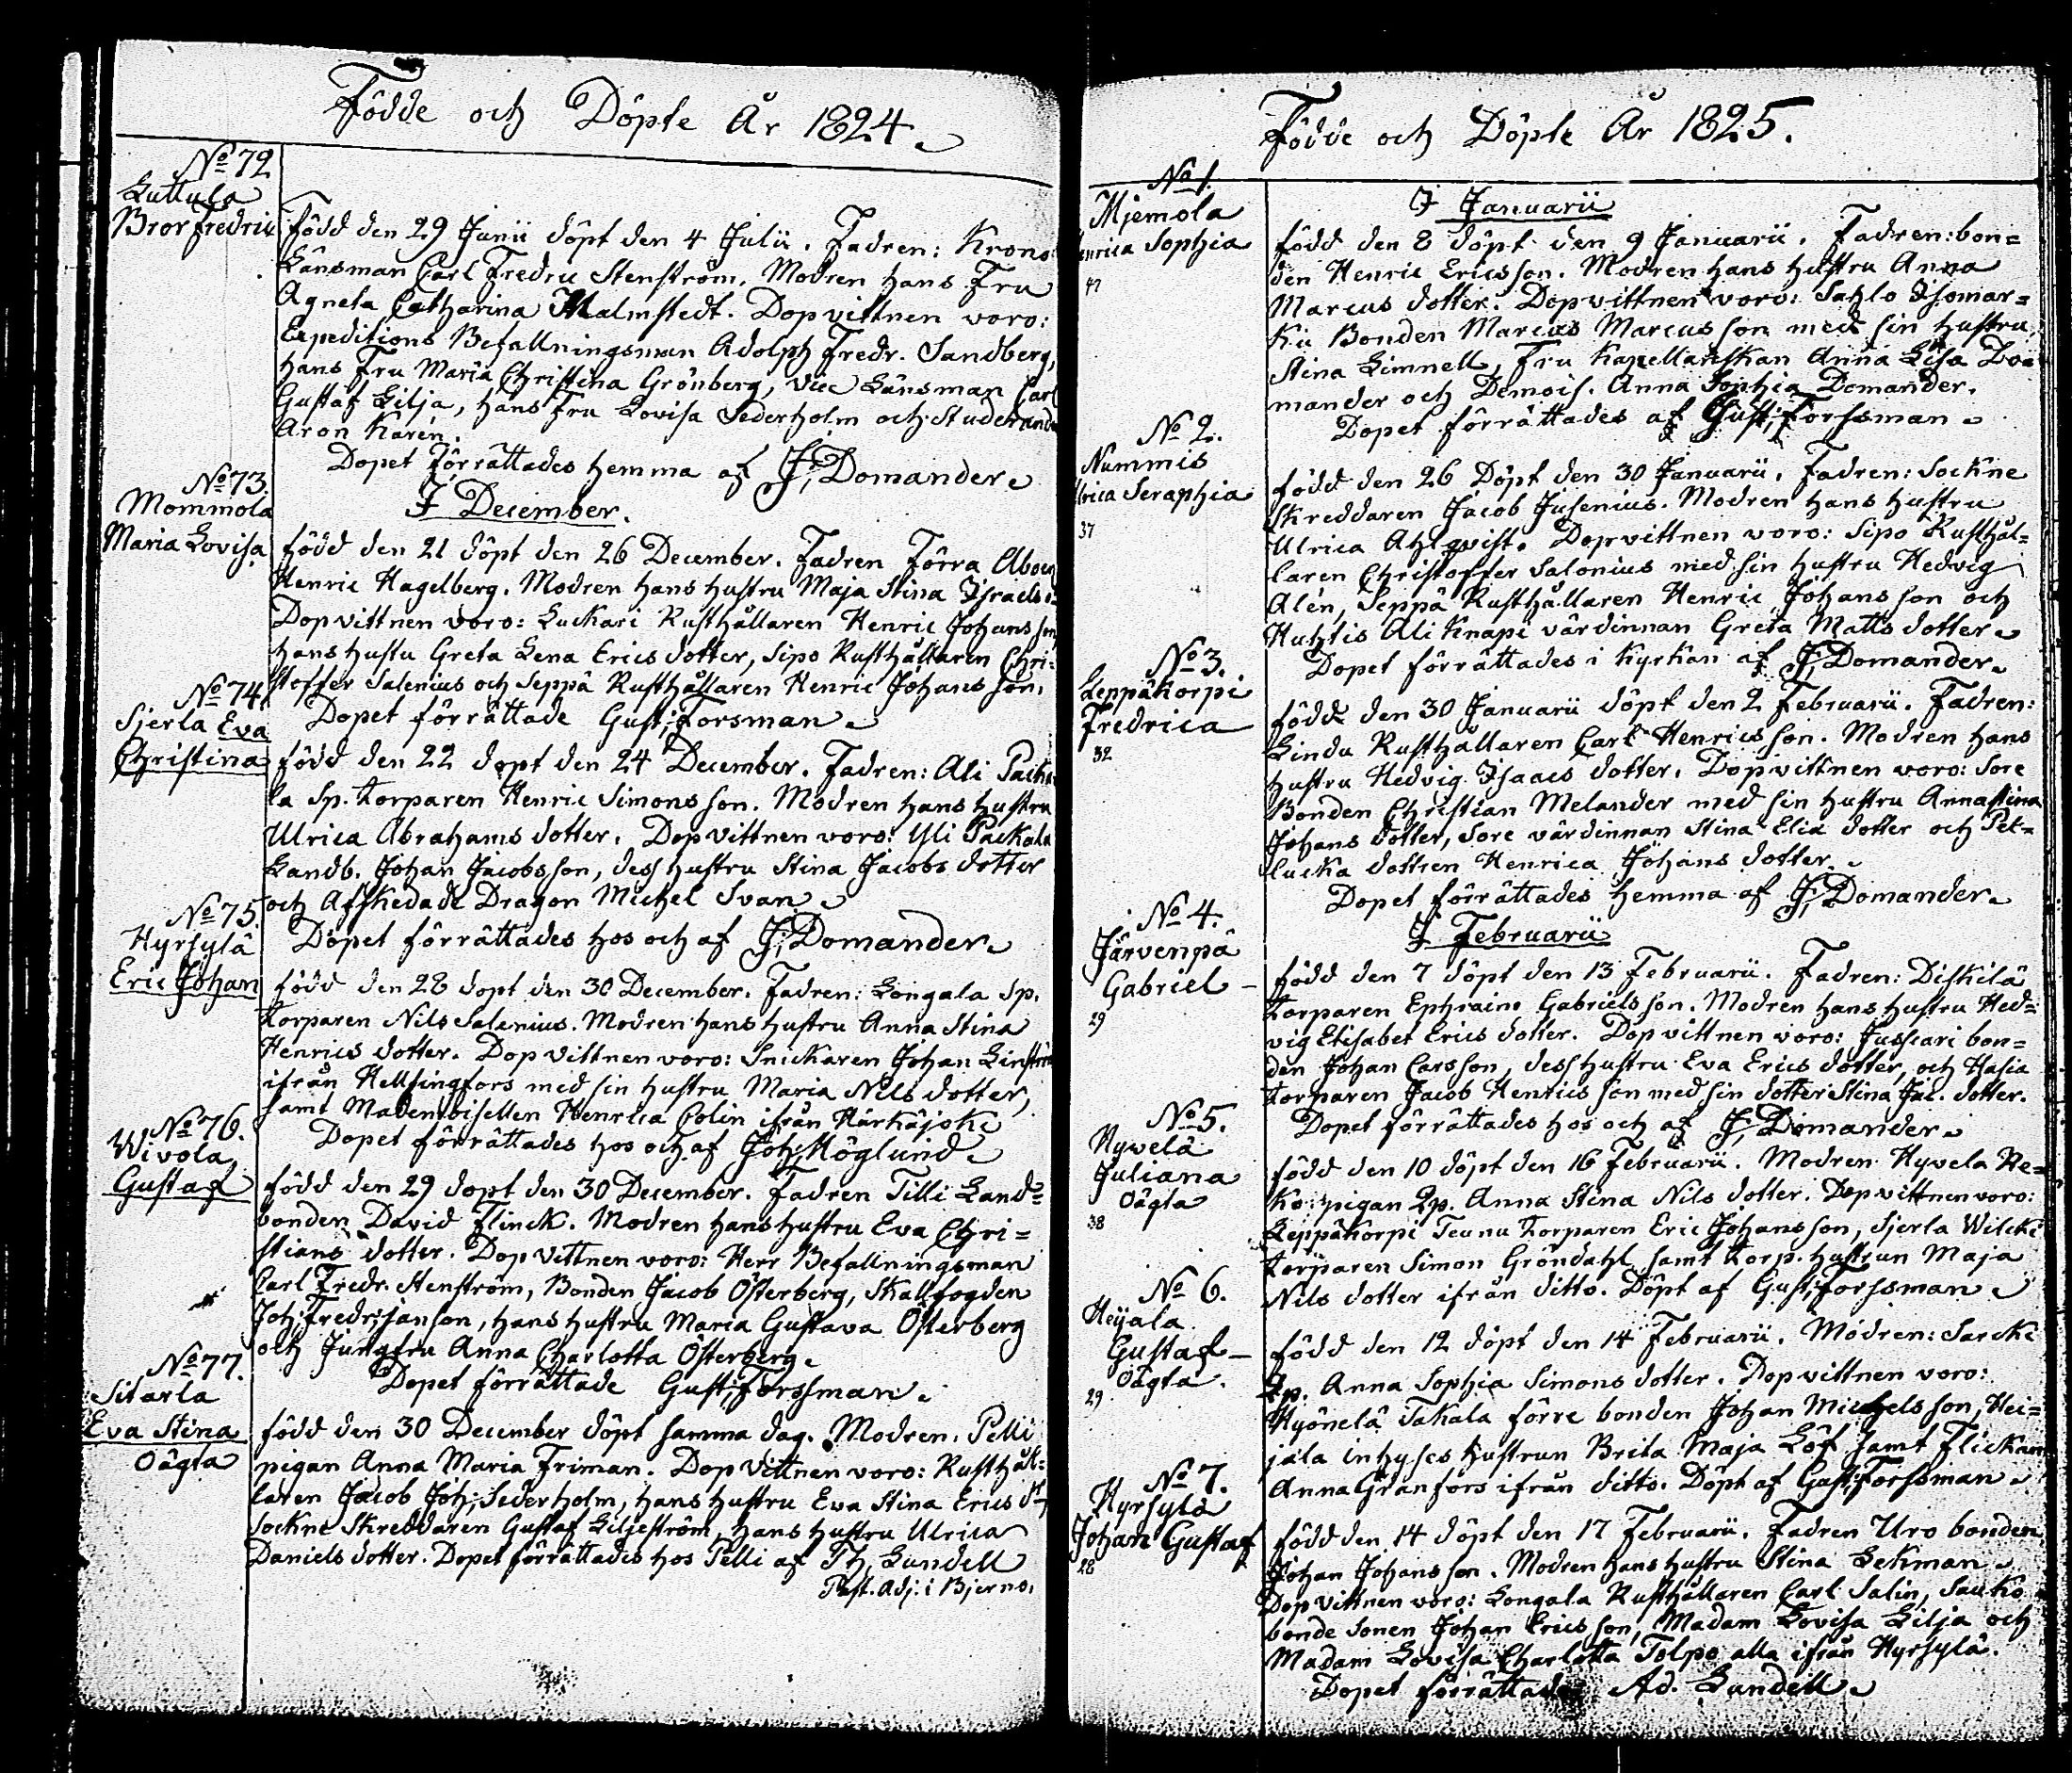 Födde och Döpte År 1824.
No 72
Luttula
Bror Fredric
Född den 29 Junii döpt den 4 Julii. Fadren: Krono
Länsman Carl Fredric Stenström. Modren hans Fru
Agneta Catharina Malmstedt. Dopvittnen voro:
Expeditions Befallningsman Adolph Fredr. Sandberg,
hans Fru Maria Christina Grönberg, vice Länsman Carl
Gustaf Lilja, hans Fru Lovisa Sederholm och Studerande
Aron Karén.
Dopet förrättades hemma af J. Domander.
I December.
No 73.
Mommola
Maria Lovisa
född den 21 döpt den 26 December. Fadren Förra Aboen
Henric Hagelberg. Modren hans hustru Maja Stina Israels
Dopvittnen voro: Luckari Rusthållaren Henric Johansson
hans hustu Greta Lena Erics dotter, Sipo Rusthållaren Chri-
stoffer Salenius och Seppä Rusthållaren Henric Johans son.
Dopet förrättade Gust; Forsman
No 74
Sjerla Eva
Christina
född den 22 döpt den 24 December. Fadren: Ali Packa
la Sp. torparen Henric Simons son. Modren hans hustru
Ulrica Abrahams dotter. Dopvittnen voro: Yli Packala
Landb. Johan Jacobsson, dess hustru Stina Jacobs dotter
och Afskedade Dragon Michel Svan
Dopet förrättades hos och af J. Domander
No 75.
Hyrsylä
Eric Johan
född den 28 dopt den 30 December. Fadren: Longala Sp.
torparen Nils Salenius. Modren hans hustru Anna Stina
Henrics dotter. Dopvittnen voro: Snickaren Johan
ifrån Helsingfors med sin hustru Maria Nils dotter,
samt Mademoisellen Henrica Colin ifrån Härkäjoki
Dopet förrättades hos och af Joh; Höglund
No 76.
Wivola
Gustaf
född den 29 dopt den 30 December. Fadren Tilli Land-
bonden David Flinck. Modren hans hustru Eva Chri-
stians dotter. Dopvittnen voro: Herr Befallningsman
Carl Fredr. Stenström, Bonden Jacob Österberg, Skallfogden
Joh; Fredr; Janson, hans hustru Maria Gustava Österberg
och Jungfru Anna Charlotta Österberg.
Dopet förrättade Gust; Forssman
No 77.
Sitarla
Eva Stina
Oägta
född den 30 December döpt samma dag. Modren. Pelli
pigan Anna Maria Friman. Dopvittnen voro: Rusthål-
laren Jacob Joh; Sederholm, hans hustru Eva Stina Erics dr
Sockne Skreddaren Gustaf Liljeström, hans hustru Ulrica
Daniels dotter. Dopet förrättades hos Pelli af Th. Lundell
Past. Adj. i Bjerno.
Födde och Döpte År 1825.
I Januarii
No 1.
Mjemola
enrica Sophia
född den 8 döpt den 9 Januarii. Fadren: bon-
den Henric Ericsson. Modren hans hustru Anna
Marcus dotter. Dopvittnen voro: Sahlo Isomar-
ku Bonden Marcus Marcus son med sin hustru
Stina Limnell, Fru Kapellanskan Anna Lisa Do-
mander och Demois. Anna Sophia Domander.
Dopet förrättades af Gust; Forssman
No 2.
Nummis
lrica Seraphia
37
född den 26 Döpt den 30 Januarii. Fadren: Sockne
Skreddaren Jacob Jusenius. Modren hans hustru
Ulrica Ahlqvist. Dopvittnen voro: Sipo Rusthål-
laren Christoffer Salonius med sin hustru Hedvig
Alén, Seppä Rusthållaren Henric Johans son och
Huhtis Ali Knapi värdinnan Greta Matts dotter
Dopet förrättades i Kyrkan af J. Domander
No 3.
Leppäkorpi
Fredrica
32
född den 30 Januarii döpt den 2 Februarii. Fadren:
Lindu Rusthållaren Carl Henricsson. Modren hans
hustru Hedvig Isaacs dotter. Dopvittnen voro: Sore
Bonden Christian Melander med sin hustru Annastina
Johans dotter, Sore värdinnan Stina Elia dotter och Pet-
lucka dottren Henrica Johans dotter.
Dopet förrättades hemma af J. Domander
I Februarii
No 4.
Järvenpä
Gabriel
29
född den 7 döpt den 13 Februarii. Fadren: Diskilä
torparen Ephraim Gabriels son. Modren hans hustru Hed-
vig Elisabet Erics dotter. Dopvittnen voro: Jusscari bon-
den Johan Carsson, dess hustru Eva Erics dotter, och Hasia
torparen Jacob Henrics son med sin dotter Stina Jac. dotter.
Dopet förrättades hos och af J. Domander
No 5.
Hyvelä
Juliana
Oägta
38
född den 10 döpt den 16 Februarii. Modren Hyvela He-
ko pigan Qp. Anna Stina Nils dotter. Dopvittnen voro:
Leppäkorpi Teunu torparen Eric Johansson, Sjerla Wilcki
torparen Simon Gröndahl samt torp. hustrun Maja
Nils dotter ifrån ditto. Döpt af Gust; Forssman
No 6.
Heijala
Gustaf
Oägta.
29
född den 12 döpt den 14 Februarii. Modren: Sarcki
Qp. Anna Sophia Simons dotter. Dopvittnen voro:
Hyönelä Takala förre bonden Johan Michels son, Hei-
jala inhyses hustrun Brita Maja Löf samt Flickan
Anna Granfors ifrån ditto. Döpt af Gust; Forssman
No 7.
Hyrsylä
Johan Gustaf
28
född den 14 döpt den 17 Februarii. Fadren Uro bonden
Johan Johans son. Modren hans hustru Stina Lekman.
Dopvittnen voro: Longala Rusthållaren Carl Salin, Sauko
bonde Sonen Johan Erics son, Madam Lovisa Lilja och
Madam Lovisa Charlotta Tolpo alla ifrån Hyrsylä.
Dopet förrättade Ad. Lundell